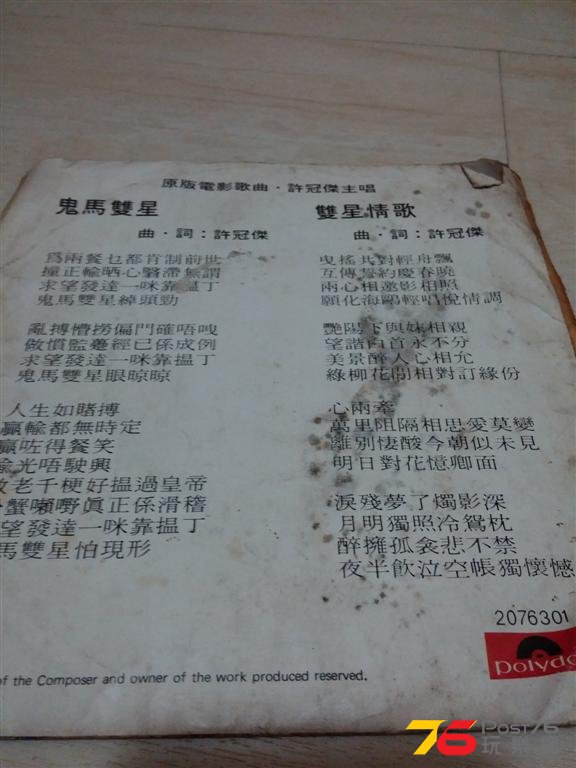 原版電影歌曲·許冠傑主唱
鬼馬雙星
曲·詞：許冠傑
為兩餐乜都肯制前世
撞正輸晒心翳滯無謂
求望發達一味靠搵丁
鬼馬雙星綽頭勁
亂搏懵撈偏門確唔曳
做慣監躉經已係成例
求望發達一咪靠搵丁
鬼馬雙星眼晾晾
人生如賭搏
贏輸都無時定
贏咗得餐笑
輸光唔駛興
老千梗好搵過皇帝
蟹嚹嘢眞正係滑稽
望發達一咪靠搵丁
馬雙星怕現形
雙星情歌
曲·詞：許冠傑
曳搖共對輕舟飄
互傳誓約慶春曉
兩心相邀影相照
願化海鷗輕唱悅情調
艷陽下與妹相親
望諧白首永不分
美景醉人心相允
綠柳花間相對訂緣份
心兩牽
萬里阻隔相思愛莫變
離別悽酸今朝似未見
明日對花憶卿面
淚殘夢了燭影深
月明獨照冷鴛枕
醉擁孤衾悲不禁
夜半飲泣空帳獨懷憾
2076301
polydo
of the Composer and owner of the work produced reserved.
76 Post76
玩樂網